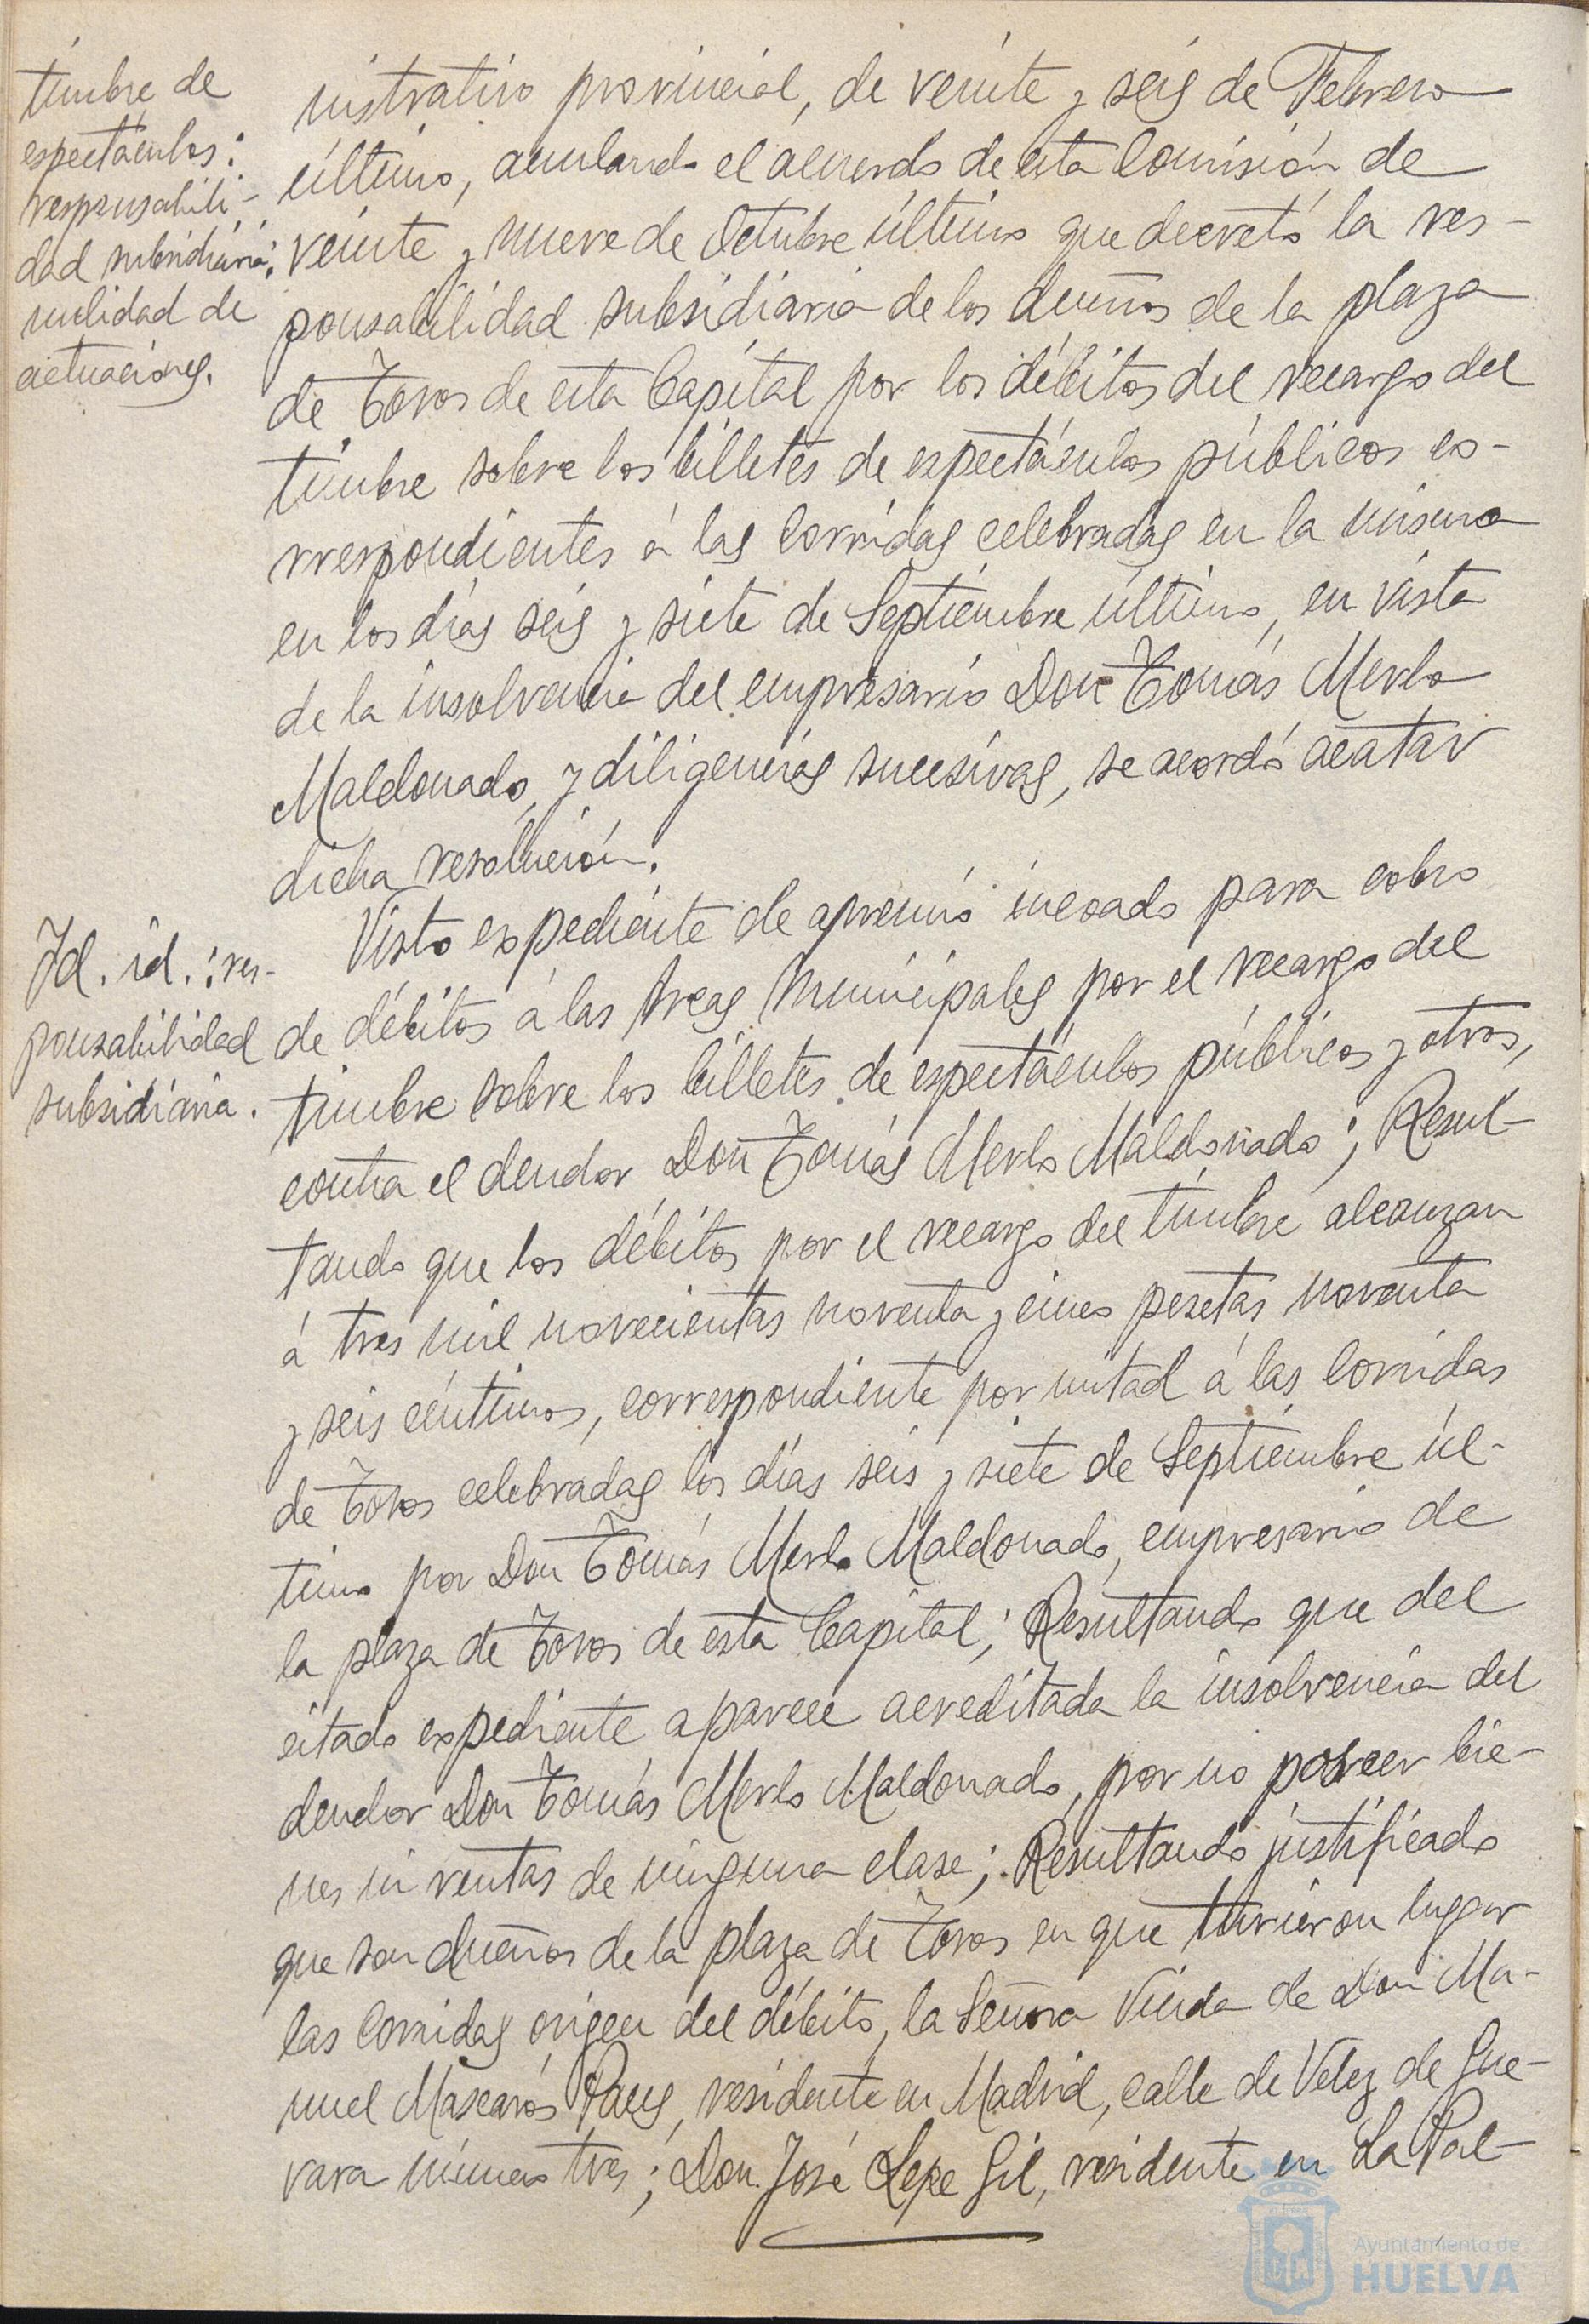 timbre de
espectáculos:
responsabili-
dad subsidiaria:
nulidad de
actuaciones.
nistrativo provincial, de veinte y seis de Febrero
último, anulando el acuerdo de esta Comisión de
veinte y nueve de Octubre último que decretó la res-
ponsabilidad subsidiaria de los dueños de la plaza
de Toros de esta Capital por los débitos del recargo del
timbre sobre los billetes de espectáculos públicos co-
rrespondientes á las corridas celebradas en la misma
en los días seis y siete de Septiembre último, en vista
de la insolvencia del empresario Don Tomás Merlo
Maldonado, y diligencias sucesivas, se acordó acatar
dicha resolución.
Id. id.: res-
ponsabilidad
subsidiaria.
Visto expediente de apremio incoado para cobro
de débitos á las Arcas Municipales por el recargo del
timbre sobre los billetes de espectáculos públicos y otros,
contra el deudor Don Tomás Merlo Maldonado; Resul-
tando que los débitos por el recargo del timbre alcanzan
á tres mil novecientas noventa y cinco pesetas noventa
y seis céntimos, correspondiente por mitad á las corridas
de Toros celebradas los días seis y siete de Septiembre úl-
timo por Don Tomás Merlo Maldonado, empresario de
la plaza de Toros de esta Capital; Resultando que del
citado expediente aparece acreditada la insolvencia del
deudor Don Tomás Merlo Maldonado, por no poseer bie-
nes ni rentas de ninguna clase; Resultando justificado
que son dueños de la plaza de Toros en que tuvieron lugar
las corridas origen del débito, la Señora Viuda de Don Ma-
nuel Mascarós Paus, residente en Madrid, calle de Velez de Gue-
vara número tres; Don José Lepe Gil, residente en La Pal-
Ayuntamiento de
HUELVA